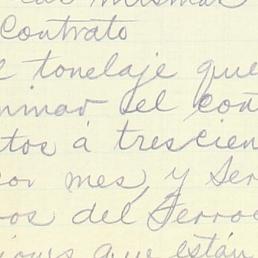 las mismas
Contrato
tonelaje que
minar el con
tos á trescien
por mes, y ser
os del Ferroc
que están